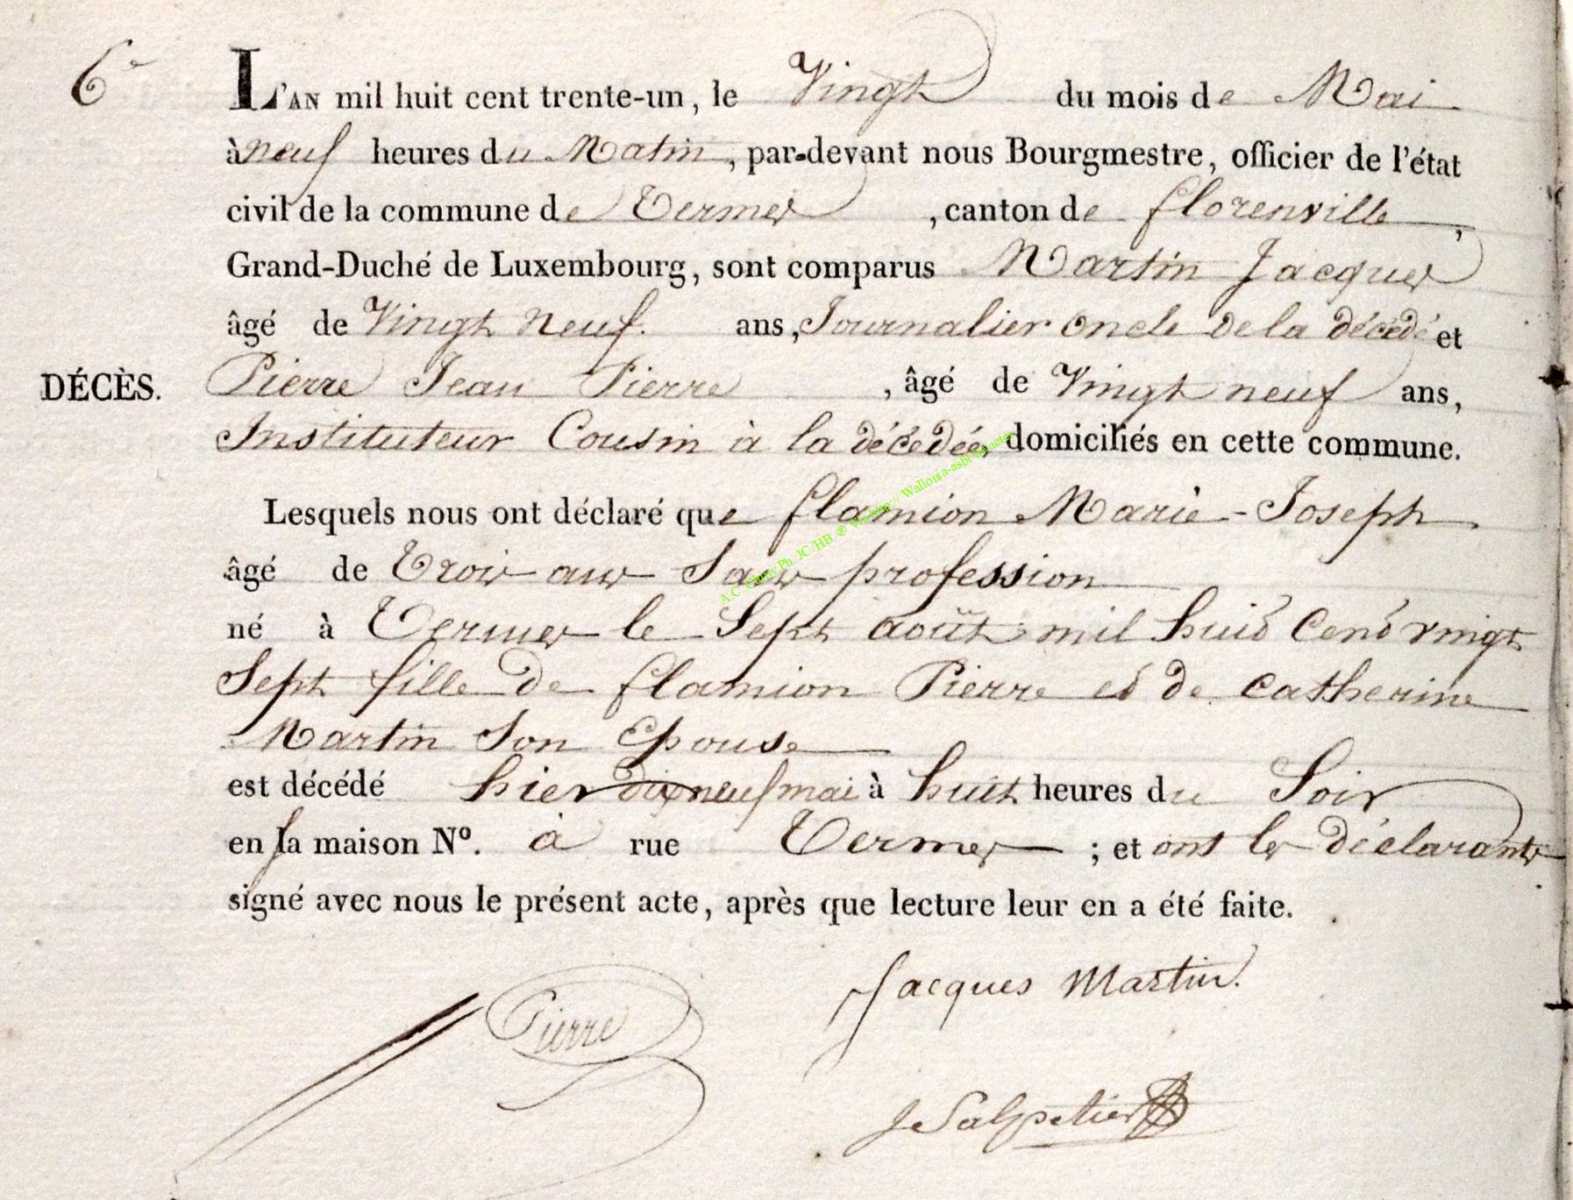 6e
L'AN mil huit cent trente-un, le Vingt du mois de Mai
à neuf heures du Matin, par-devant nous Bourgmestre, officier de l'état
civil de la commune de Termes, canton de florenville,
Grand-Duché de Luxembourg, sont comparus Martin Jacques
âgé de Vingt neuf ans, Journalier oncle de la décédé et
DÉCÈS.
Pierre Jean Pierre, âgé de Vingt neuf ans,
Instituteur Cousin à la décédée, domiciliés en cette commune.
Lesquels nous ont déclaré que flamion Marie-Joseph
âgé de Trois ans Sans profession
né à Termes le Sept août mil huit Cent vingt
Sept fille de flamion Pierre et de catherine
Martin Son Epouse
est décédé hier dix neuf mai à huit heures du Soir
en sa maison N°. à rue Termes; et ont les déclarants
signé avec nous le présent acte, après que lecture leur en a été faite.
Jacques Martin.
Pierre
J Salpetier